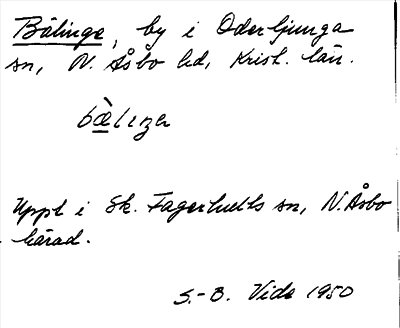 Bälinge, by i Oderljunga
sn, N. Åsbo hd, Krist. län.
bæ̀lıŋər
Uppt i Sk. Fagerhults sn, N. Åsbo
härad.
S.-B. Vide 1950